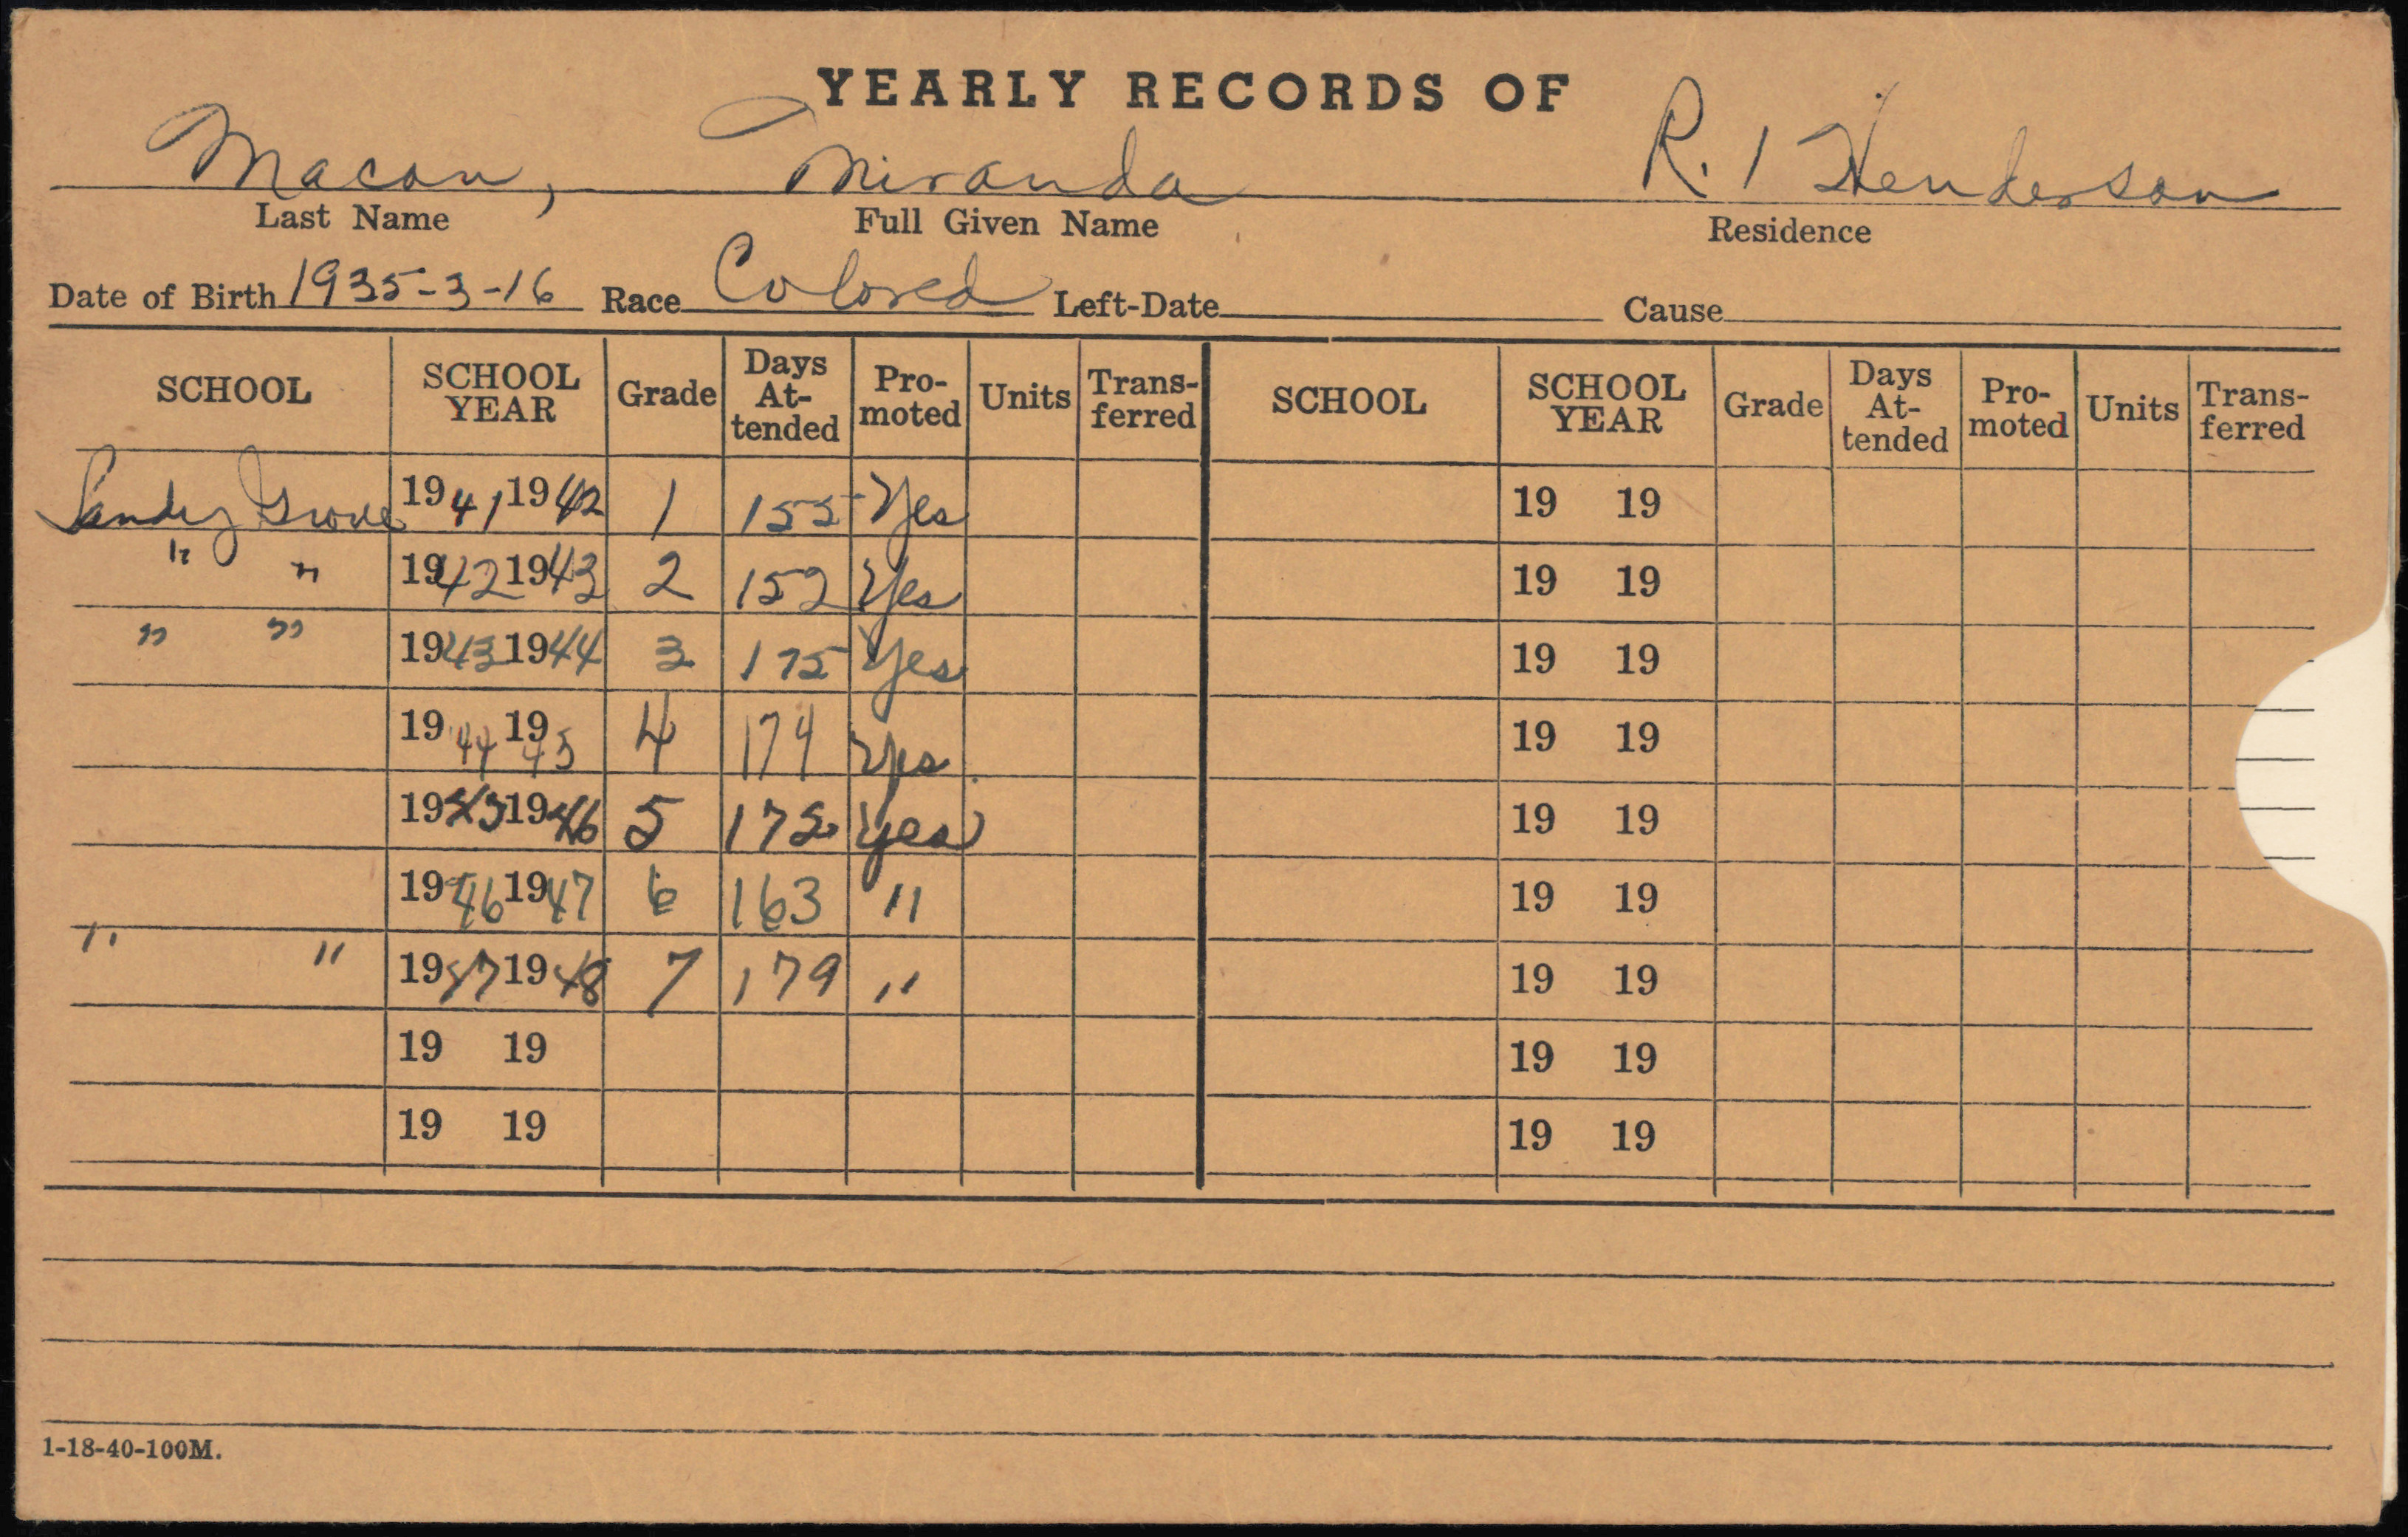 YEARLY RECORDS OF
Macon, Miranda R. 1 Henderson
Last Name Full Given Name Residence
Date of Birth 1935-3-16 Race Colored Left-Date Cause
SCHOOL SCHOOL YEAR Grade Days At-tended Pro-moted Units Trans-ferred SCHOOL SCHOOL YEAR Grade Days At-tended Pro-moted Units Trans-ferred
Sandy Grove 1941 1942 1 155 Yes 19 19
" " 1942 1943 2 152 Yes 19 19
" " 1943 1944 3 175 Yes 19 19
1944 1945 4 174 Yes 19 19
1945 1946 5 172 Yes 19 19
1946 1947 6 163 " 19 19
" " 1947 1948 7 179 " 19 19
19 19 19 19
19 19 19 19
1-18-40-100M.